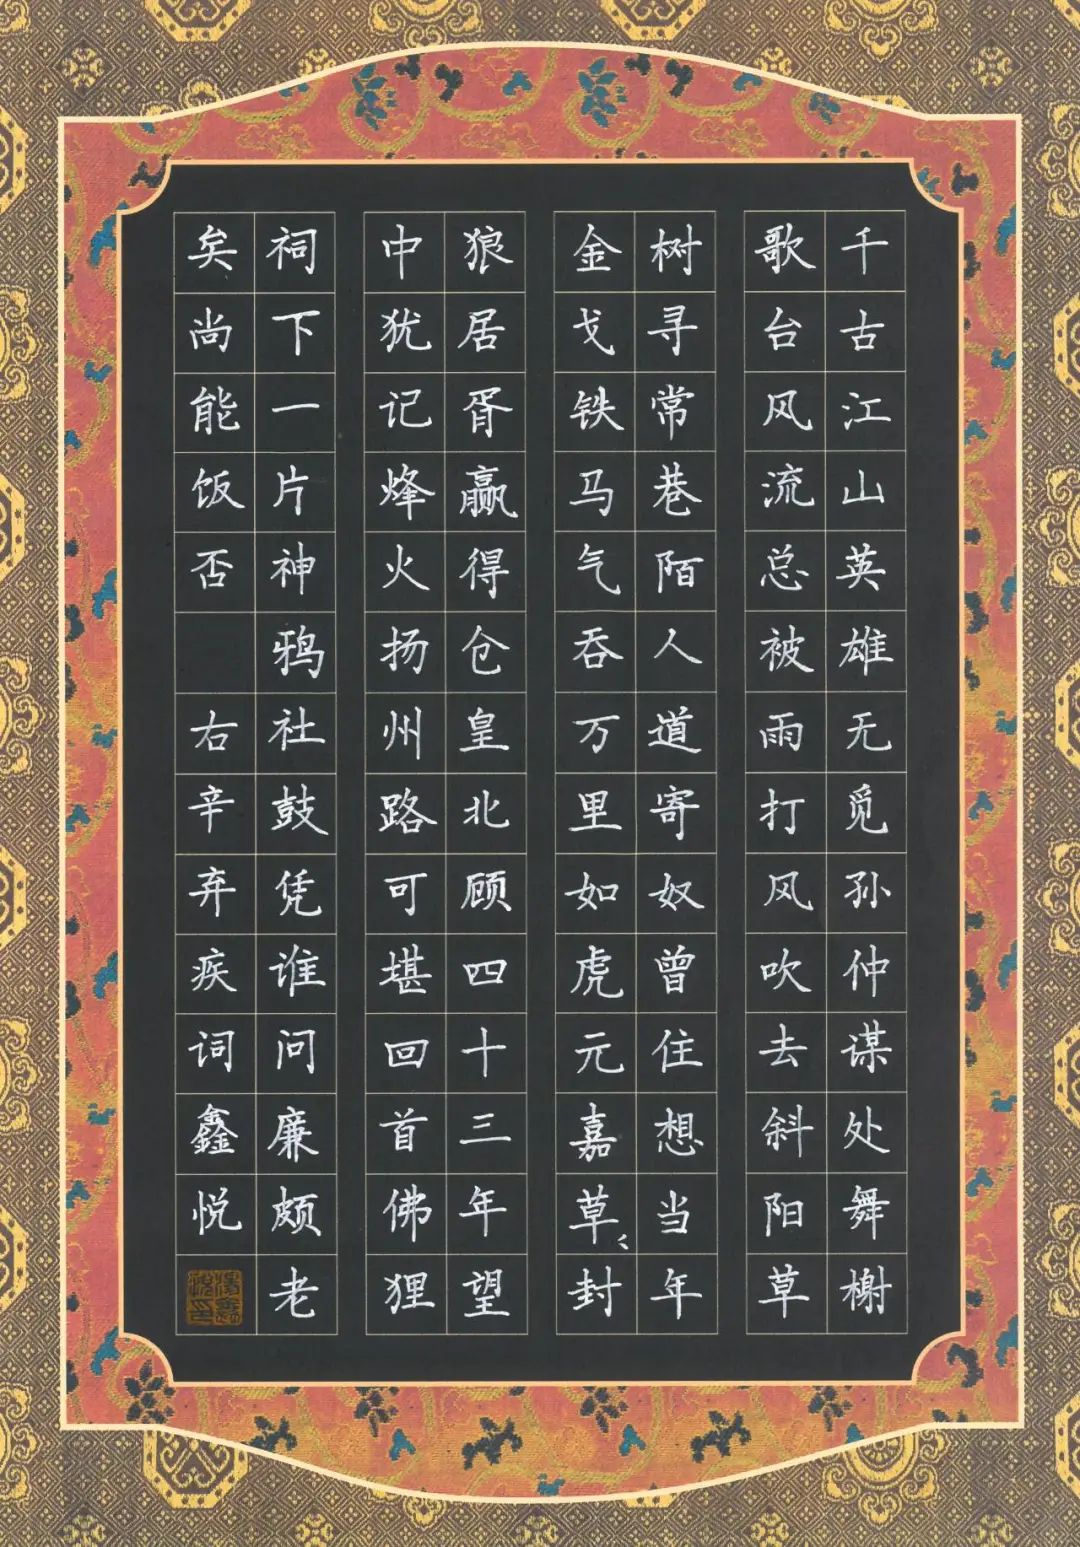 千古江山英雄无觅孙仲谋处舞榭
歌台风流总被雨打风吹去斜阳草
树寻常巷陌人道寄奴曾住想当年
金戈铁马气吞万里如虎元嘉草〻封
狼居胥赢得仓皇北顾四十三年望
中犹记烽火扬州路可堪回首佛狸
祠下一片神鸦社鼓凭谁问廉颇老
矣尚能饭否 右辛弃疾词鑫悦